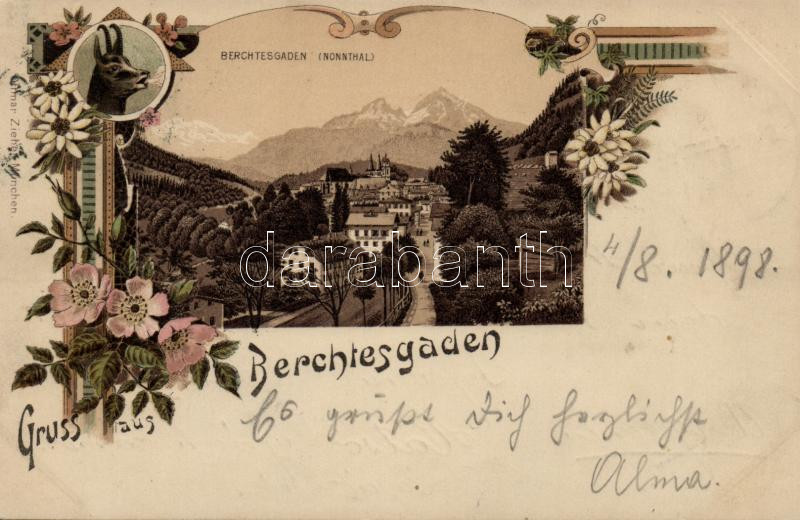 BERCHTESGADEN (NONNTHAL)
Ottmar Zieher, München.
darabanth
4/8. 1898.
Gruss aus
Berchtesgaden
Es grüßt Dich herzlichst
Alma.